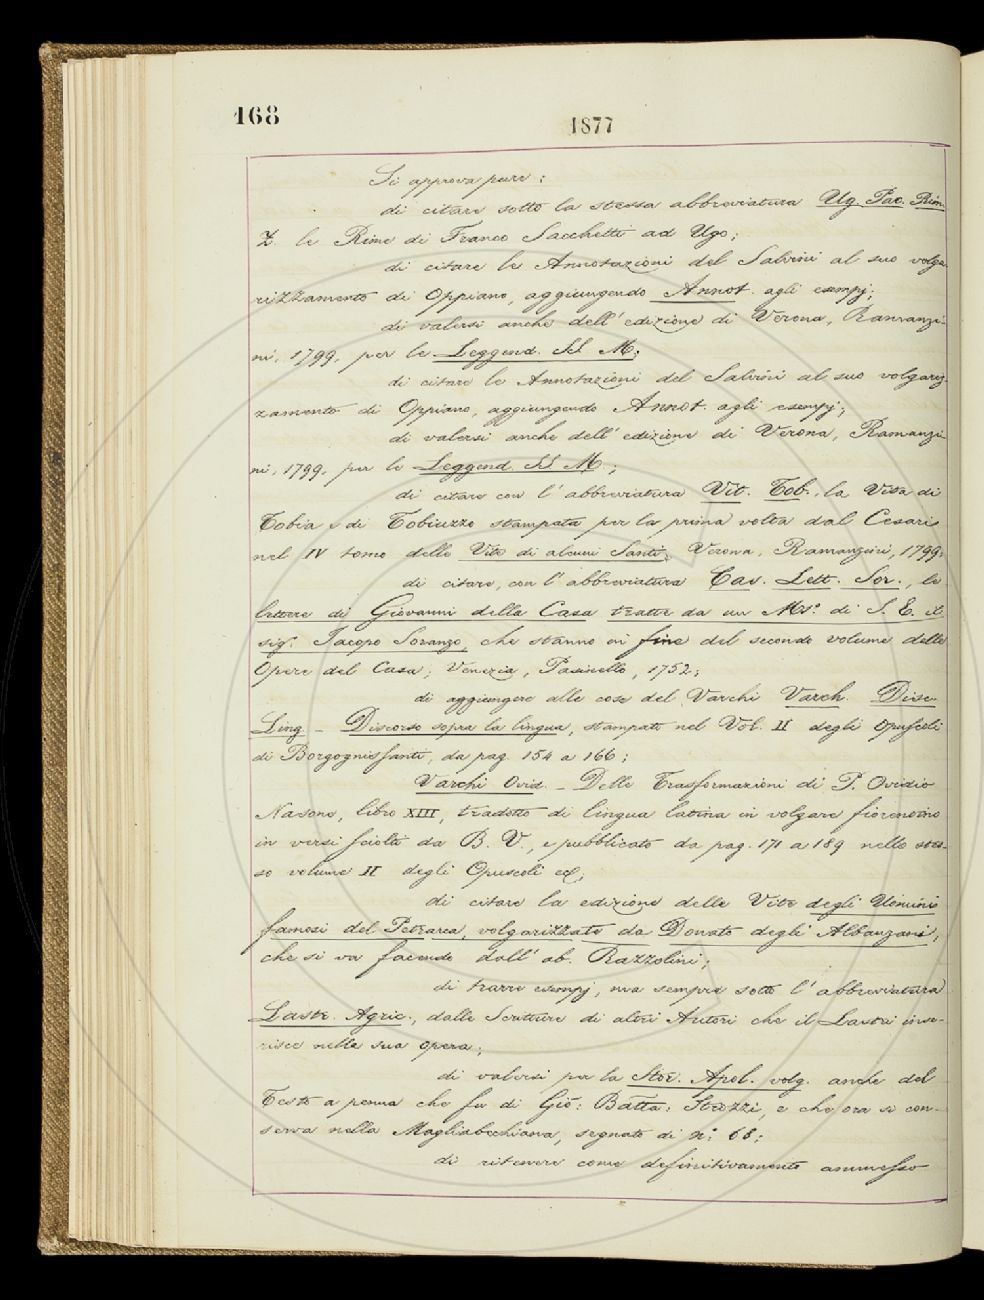 168
1877
Si approva pure:
di citare sotto la stessa abbreviatura Ug. Pac. Rim.
2. le Rime di Franco Sacchetti ad Ugo;
di citare le Annotazioni del Salvini al suo volga-
rizzamento di Oppiano, aggiungendo Annot. agli esempj;
di valersi anche dell' edizione di Verona, Ramanzi-
ni, 1799, per le Leggend. SS. M.;
di citare le Annotazioni del Salvini al suo volgariz-
zamento di Oppiano, aggiungendo Annot. agli esempj;
di valersi anche dell' edizione di Verona, Ramanzi-
ni, 1799, per le Leggend. SS. M.;
di citare con l' abbreviatura Vit. Tob., la Vita di
Tobia e di Tobiuzzo stampata per la prima volta dal Cesari
nel IV tomo delle Vite di alcuni Santi, Verona, Ramanzini, 1799;
di citare, con l' abbreviatura Cas. Lett. Sor., le
lettere di Giovanni della Casa tratte da un Ms.° di S. E. il
sig. Jacopo Soranzo, che stanno in fine del secondo volume delle
Opere del Casa; Venezia, Pasinello, 1752;
di aggiungere alle cose del Varchi Varch. Disc.
Ling. - Discorso sopra la lingua, stampato nel Vol. II degli Opuscoli
di Borgognissanti, da pag. 154 a 166;
Varchi Ovid. - Delle Trasformazioni di P. Ovidio
Nasone, libro XIII, tradotto di lingua latina in volgare fiorentino
in versi sciolti da B. V., e pubblicato da pag. 171 a 189 nello stes-
so volume II degli Opuscoli ec;
di citare la edizione delle Vite degli Uomini
famosi del Petrarca, volgarizzate da Donato degli Albanzani,
che si va facendo dall' ab. Razzolini;
di trarre esempj, ma sempre sotto l' abbreviatura
Lastr. Agric., dalle Scritture di altri Autori che il Lastri inse-
risce nella sua opera;
di valersi per la Stor. Apol. volg. anche del
Testo a penna che fu di Gio: Batta: Strozzi, e che ora si con-
serva nella Magliabechiana, segnato di n.° 68;
di ritenere come definitivamente ammesso